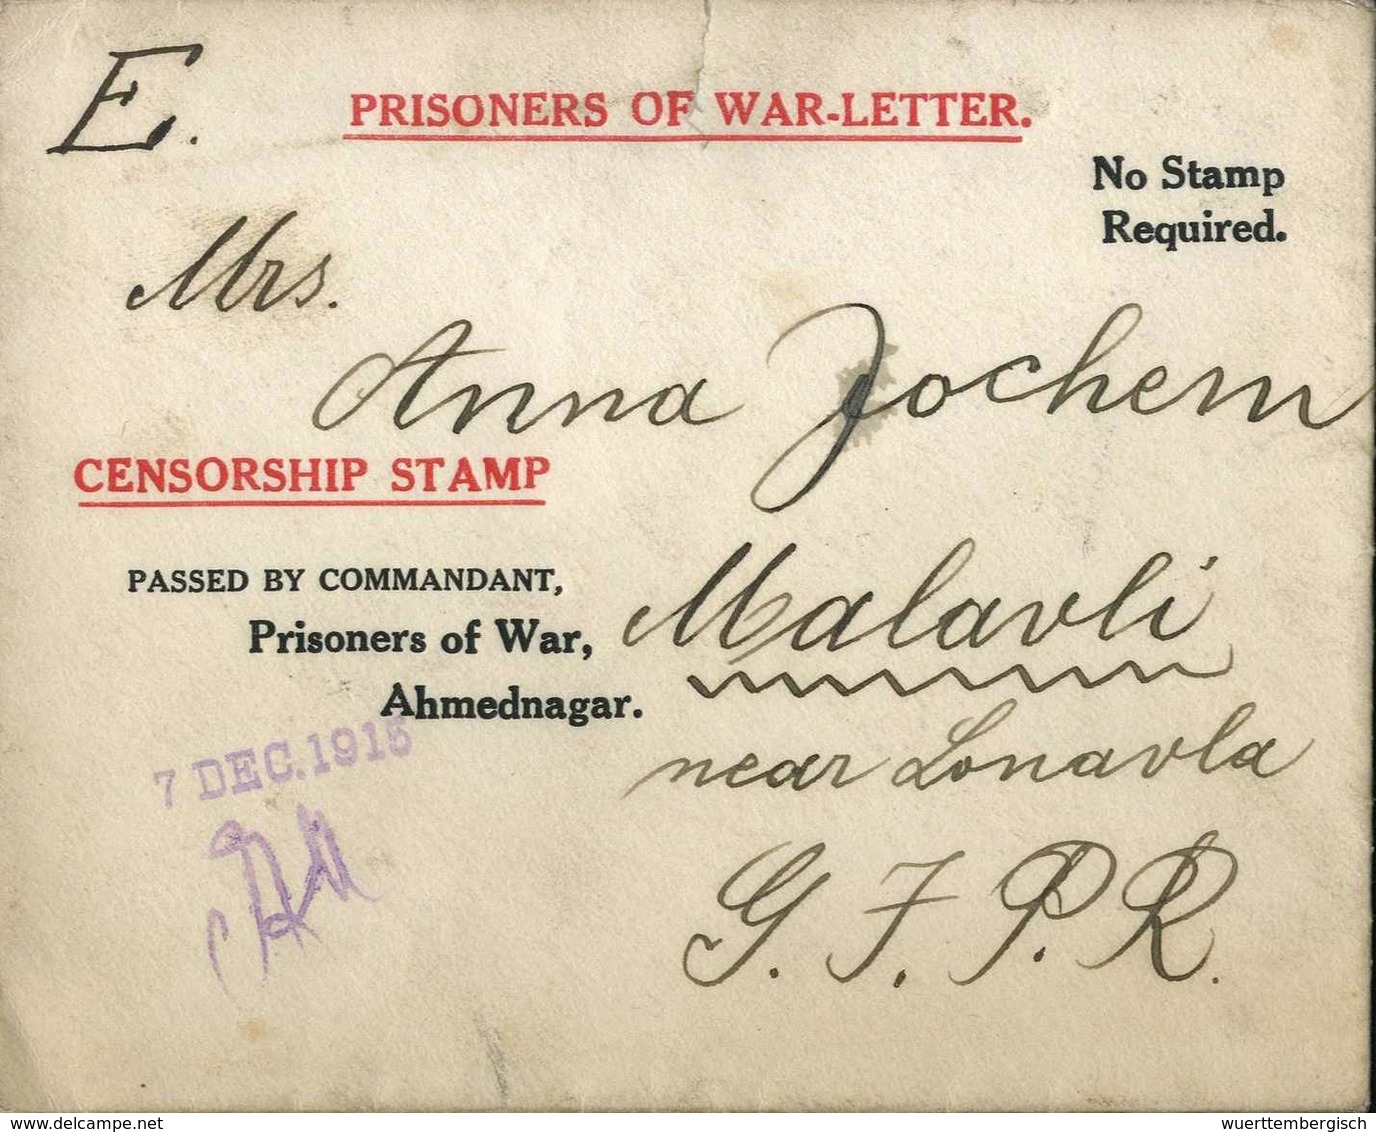 E.
PRISONERS OF WAR-LETTER.
No Stamp
Required.
Mrs.
Anna Jochem
CENSORSHIP STAMP
PASSED BY COMMANDANT,
Prisoners of War,
Ahmednagar.
Malavli
near Lonavla
G. I. P. R.
7 DEC. 1915
delcampe.net
wuerttembergisch